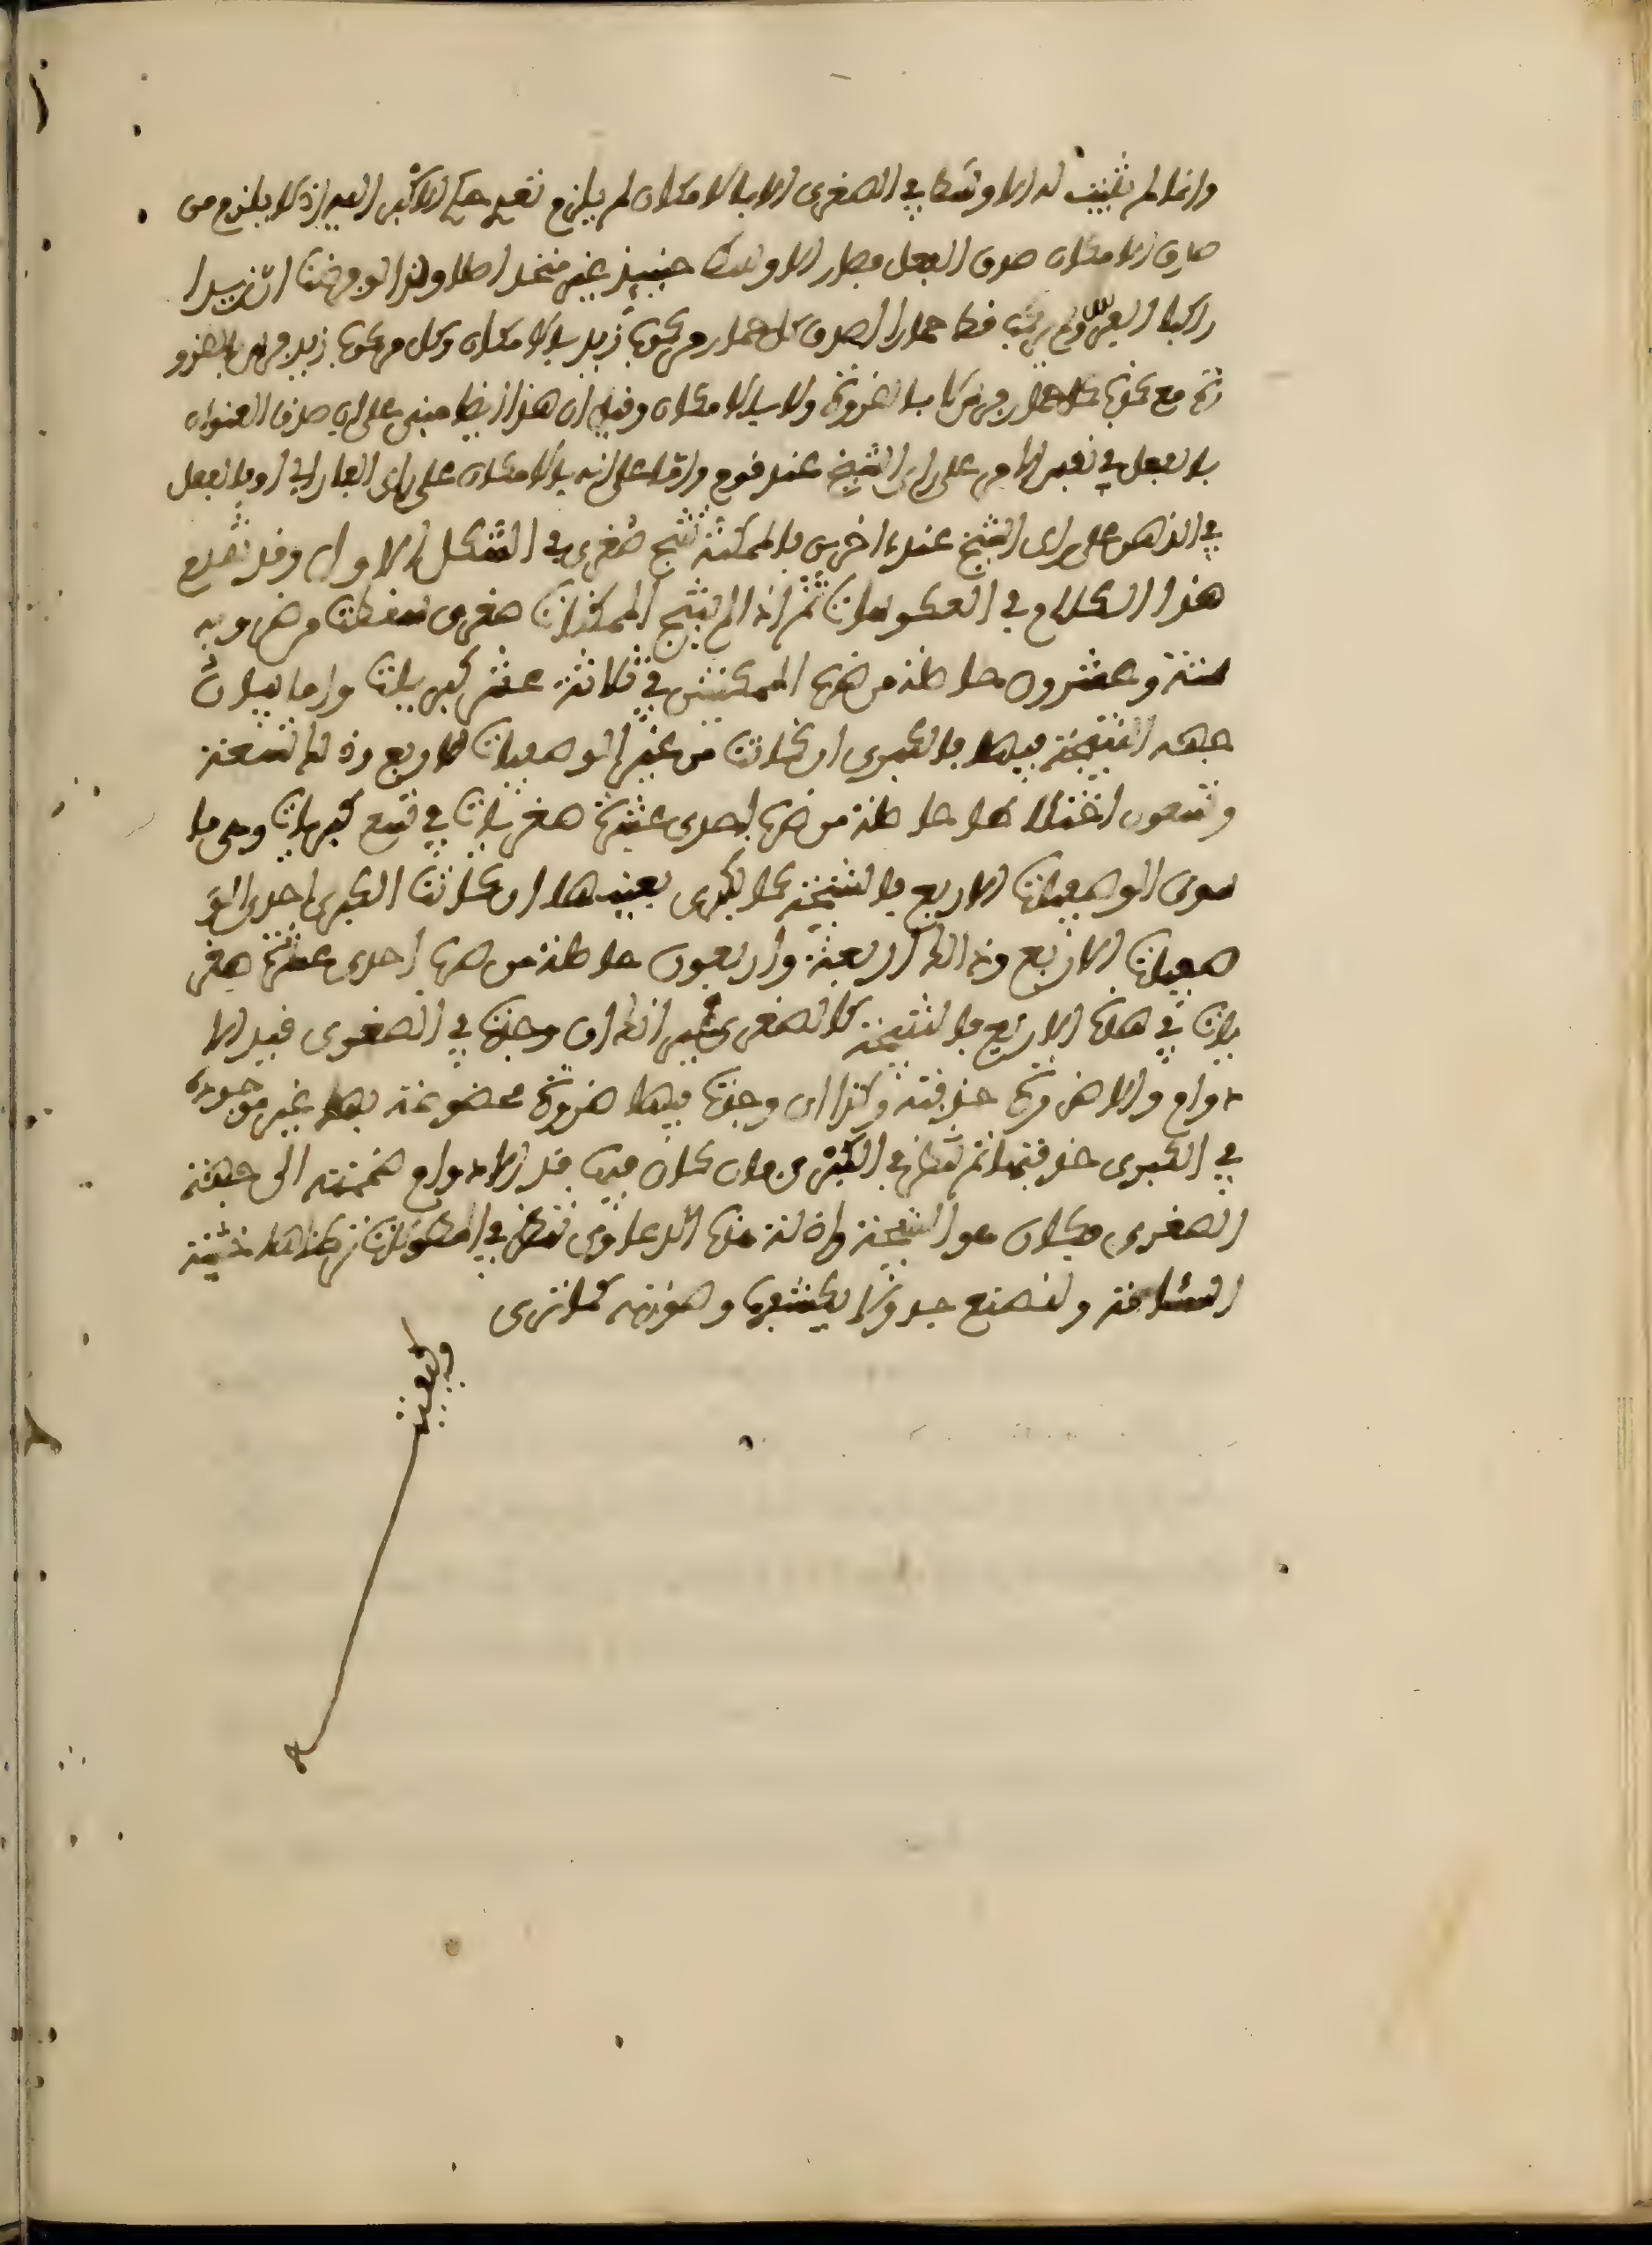 واذا لم يثبت له الاوسط في الصغرى الا بالامكان لم يلزم تعدي حكم الاكبر اليه اذ لا يلزم من
صدق الامكان صدق الفعل فصار الاوسط حينيذ غير متحد اصلا ولذا لو فرضنا ان زيدا
راكبا الفرس ولم يركب قط حمارا لصدق كل حمار مركوب زيد بالامكان وكل مركوب زيد فرس بالضرو
رة مع كذب كل حمار فرس لا بالضرورة ولا بالامكان وقيل ان هذا ايضا مبني على ان صدق العنوان
بالفعل في نفس الامر على راي الشيخ عند قوم واما على انه بالامكان على راي الفارابي او بالفعل
في الذهن على راى الشيخ عند ءاخرين فالممكنة تنتج صغرى في الشكل الاول وقد تقدم
هذا الكلام في العكوسات ثم انه اذا لم تنتج الممكنتان صغرى سقطت من ضروبه
ستة وعشرون حاصلة من ضرب الممكنتين في ثلاثة عشر كبريات واما بيان
جهة النتيجة فيها فالكبرى ان كانت من غير الوصفيات الاربع وذلك تسعة
وتسعون اختلاطا حاصلة من ضرب احدى عشرة صغريات في تسع كبريات وهي ما
سوى الوصفيات الاربع فالنتيجة كالكبرى بعينها وان كانت الكبرى احدى الو
صفيات الاربع وذلك اربعة واربعون حاصلة من ضرب احدى عشرة صغر
يات في هذه الاربع فالنتيجة كالصغرى غير انك ان وجدت في الصغرى قيد الا
دوام والاضرورة حذفته وكذا ان وجدت فيها ضرورة مخصوصة بها غير موجودة
في الكبرى حذفتها ثم تنظر في الكبرى فان كان فيها قيد الادوام ضممته الى جهة
الصغرى فكان هو النتيجة وادلة هذه الدعاوى تنظر في المطولات تركناها خشية
السئامة ولنضع جدولا يكشفها وصورته كما ترى